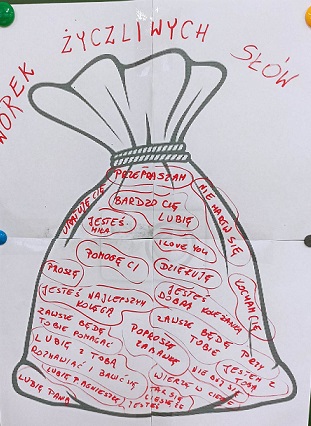 WOREK ŻYCZLIWYCH SŁÓW
PRZEPRASZAM
NIE MARTW SIĘ
BARDZO CIĘ
LUBIĘ
JESTEŚ
MIŁA
I LOVE YOU
POMOGĘ CI
DZIĘKUJĘ
PROSZĘ
KOCHAM CIĘ
JESTEŚ NAJLEPSZYM
KOLEGĄ
JESTEŚ
DOBRĄ KOLEŻANKĄ
ZAWSZE BĘDĘ
TOBIE POMAGAĆ
ZAWSZE BĘDĘ PRZY
TOBIE
POPROSZĘ
ZABAWKĘ
LUBIĘ Z TOBĄ
ROZMAWIAĆ I BAWIĆ SIĘ
JESTEM Z
TOBĄ
NIE BÓJ SIĘ
LUBIĘ AGNIESZKĘ
WIERZĘ W CIEBIE
LUBIĘ PANA
TAK SIĘ
CIESZĘ ŻE
JESTEŚ